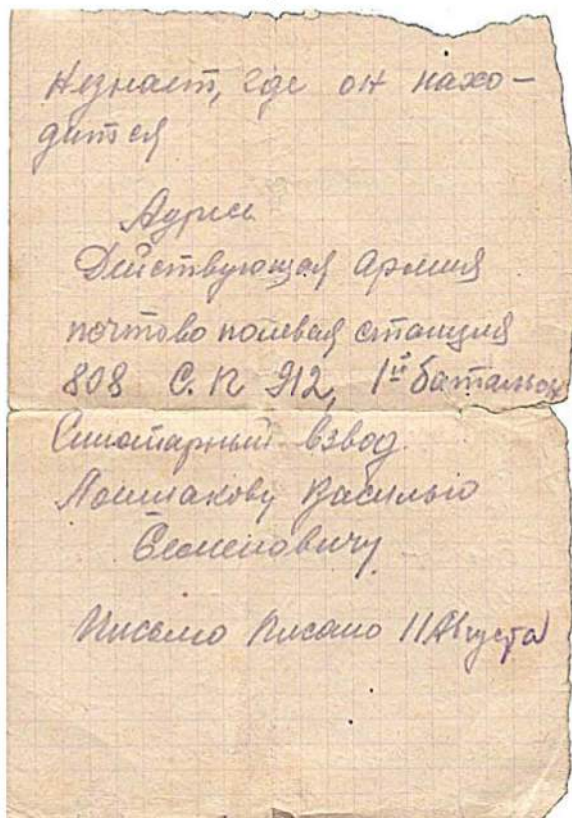 Незнает, где он нахо-
дится
Адрес
Действующая Армия
почтово полевая станция
808 С.П 912, 1й батальон
взвод
Василью
Семеновичу
Письмо писано 11 Августа